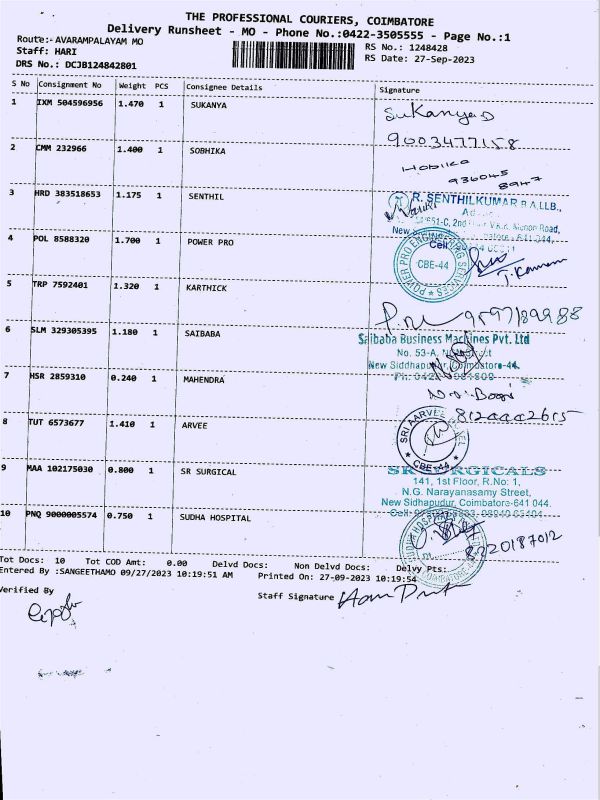 THE PROFESSIONAL COURIERS, COIMBATORE
Delivery Runsheet - MO - Phone No.:0422-3505555 - Page No.:1
Route:- AVARAMPALAYAM MO
RS No.: 1248428
Staff: HARI
RS Date: 27-Sep-2023
DRS No.: DCJB124842801
S No Consignment No Weight PCS Consignee Details Signature
1 IXM 504596956 1.470 1 SUKANYA Sukanya D
9003477158
2 CMM 232966 1.400 1 SOBHIKA
936045
8947
3 HRD 383518653 1.175 1 SENTHIL R. SENTHILKUMAR B.A.LLB.,
651-C, 2nd V.K.K. Menon Road,
New
Cell
4 POL 8588320 1.700 1 POWER PRO POWER PRO ENGINEERING SERVICES
CBE-44
T. Kannan
5 TRP 7592401 1.320 1 KARTHICK
6 SLM 329305395 1.180 1 SAIBABA Saibaba Business Machines Pvt. Ltd
No. 53-A,
New Siddhapudur, Coimbatore-44.
7 HSR 2859310 0.240 1 MAHENDRA
8 TUT 6573677 1.410 1 ARVEE SRI AARVEE
CBE-44
9 MAA 102175030 0.800 1 SR SURGICAL SR SURGICALS
141, 1st Floor, R.No: 1,
N.G. Narayanasamy Street,
New Sidhapudur, Coimbatore-641 044.
10 PNQ 9000005574 0.750 1 SUDHA HOSPITAL SUDHA HOSPITAL
8220187012
COIMBATORE
Tot Docs: 10 Tot COD Amt: 0.00 Delvd Docs: Non Delvd Docs: Delvy Pts:
Entered By :SANGEETHAMO 09/27/2023 10:19:51 AM Printed On: 27-09-2023 10:19:54
Verified By
Staff Signature